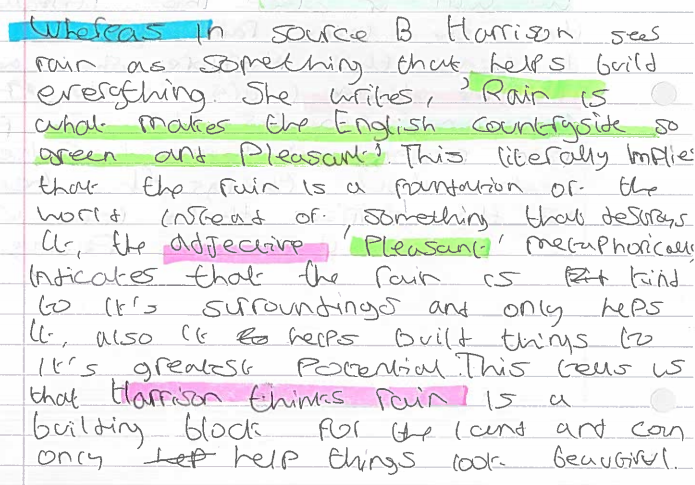 Whereas in source B Harrison sees
rain as something that helps build
everything. She writes, 'Rain is
what makes the English Countryside so
green and Pleasant'. This literally Implies
that the rain is a foundation of the
world instead of something that destroys
it, the adjective 'Pleasant' metaphorically
indicates that the rain is kind
to it's surroundings and only helps
it, also it helps built things to
it's greatest Potential. This tells us
that Harrison thinks rain is a
building block for the land and can
only help things look beautiful.